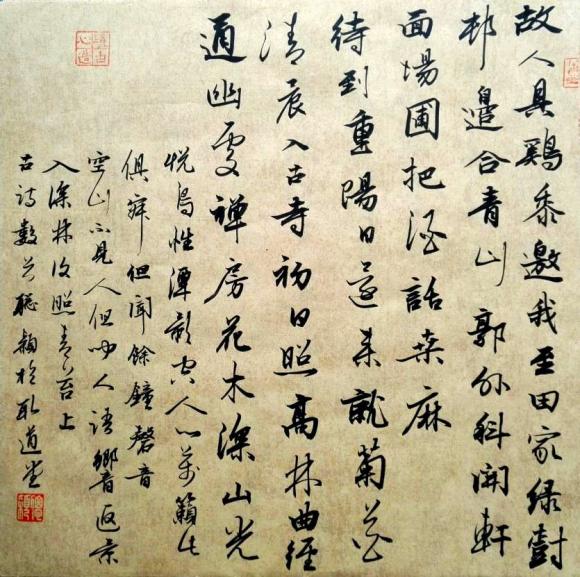 故人具鷄黍邀我至田家绿樹
邨邊合青山郭外斜開軒
面場圃把酒話桑麻
待到重陽日還来就菊花
清晨入古寺初日照高林曲徑
通幽處禅房花木深山光
悦鳥性潭影空人心萬籟此
俱寂但聞餘鐘磬音
空山不見人但闻人语響返景
入深林復照青苔上
古詩數首聴於道堂